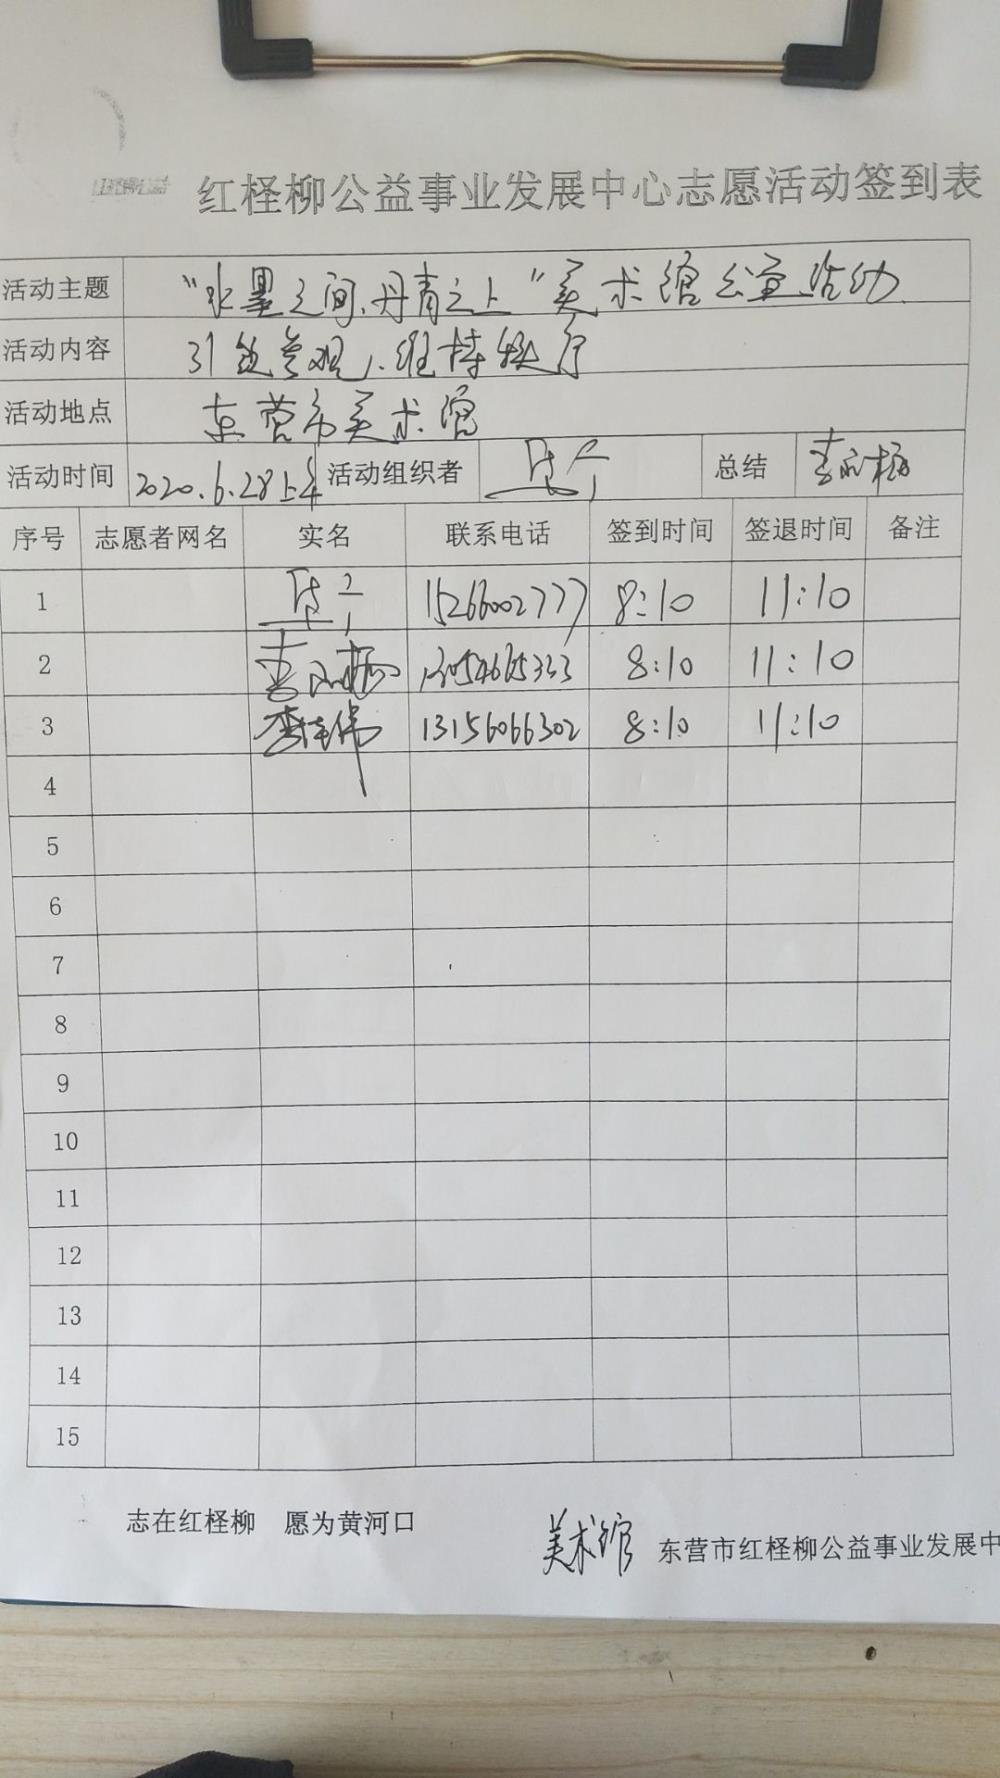 红柽柳公益事业发展中心志愿活动签到表
活动主题 “水墨之间、丹青之上”美术馆公益活动
活动内容 引导参观、维持秩序
活动地点 东营市美术馆
活动时间 2020.6.28上午 活动组织者 总结
序号 志愿者网名 实名 联系电话 签到时间 签退时间 备注
1 15266002777 8:10 11:10
2 8:10 11:10
3 13156066302 8:10 11:10
4
5
6
7
8
9
10
11
12
13
14
15
志在红柽柳 愿为黄河口
美术馆 东营市红柽柳公益事业发展中